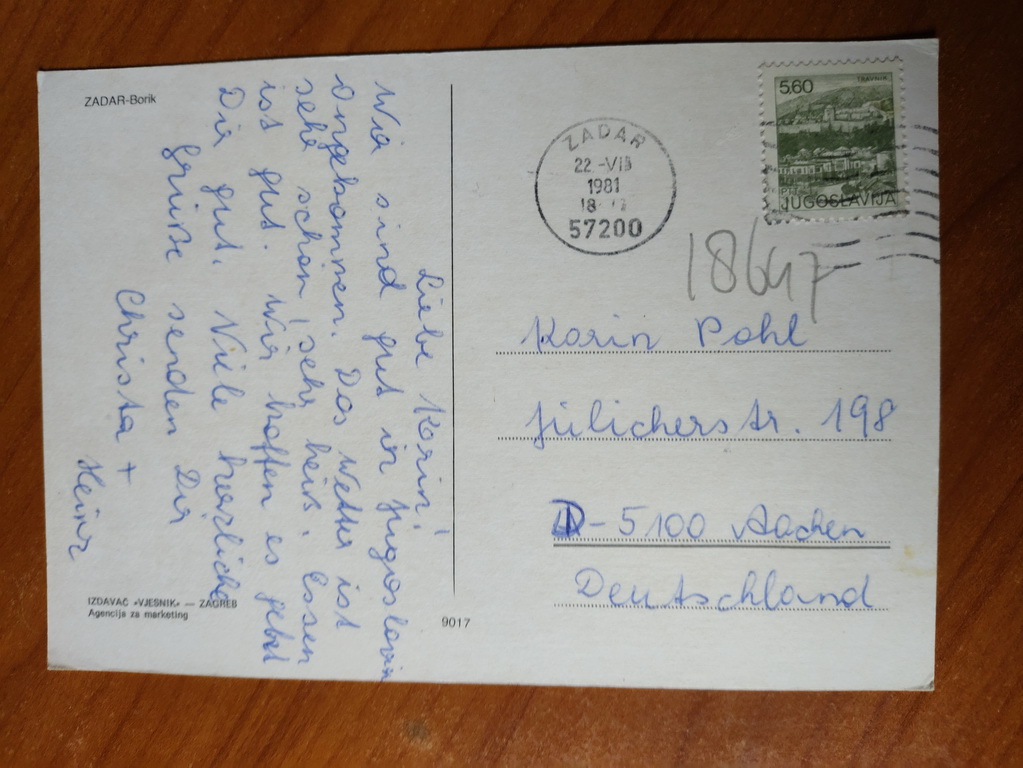 ZADAR-Borik
Liebe Karin!
Wir sind gut in Jugoslavin
angekommen. Das Wetter ist
sehr schön, sehr heiß. Essen
ist gut. Wir hoffen es gehet
Dir gut. Viele herzliche
Grüße senden Dir
Christa +
Heinz
IZDAVAČ »VJESNIK« — ZAGREB
Agencija za marketing
9017
ZADAR
22.-VII
1981
18
57200
5,60
TRAVNIK
JUGOSLAVIJA
18647
Karin Pohl
Jülicherstr. 198
D-5100 Aachen
Deutschland